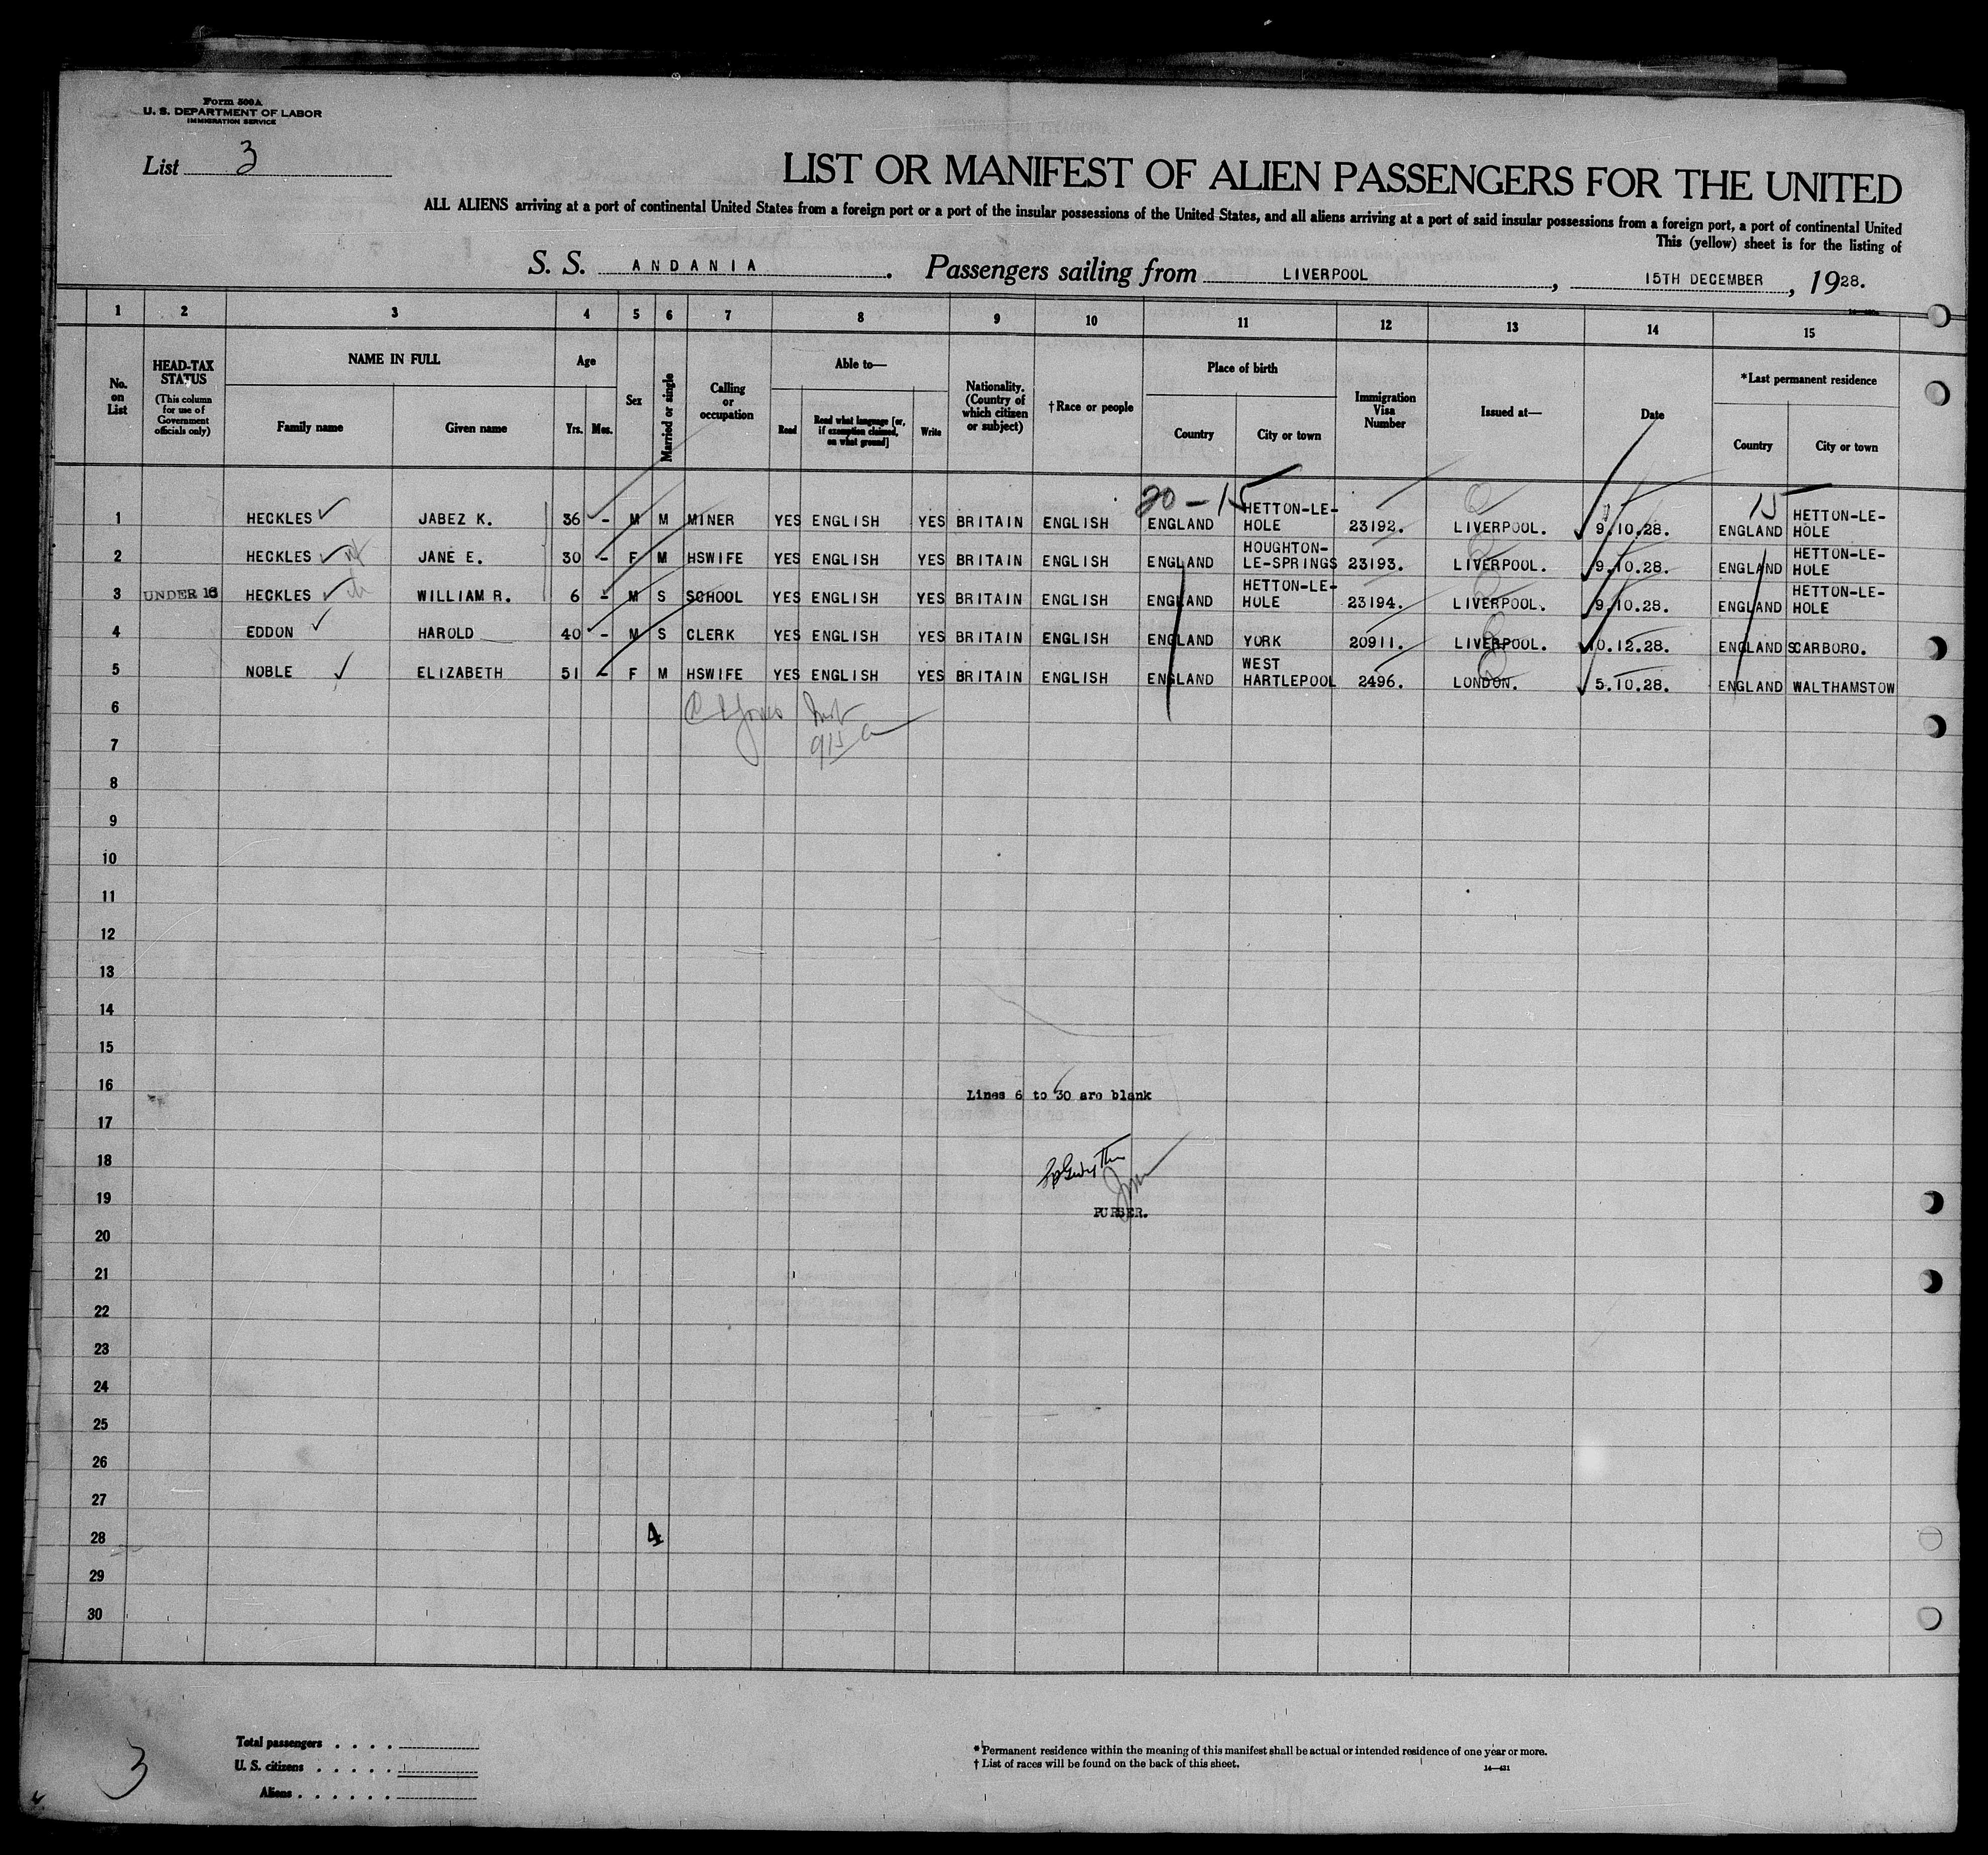 Form 500A
U. S. DEPARTMENT OF LABOR
IMMIGRATION SERVICE
List 3
LIST OR MANIFEST OF ALIEN PASSENGERS FOR THE UNITED
ALL ALIENS arriving at a port of continental United States from a foreign port or a port of the insular possessions of the United States, and all aliens arriving at a port of said insular possessions from a foreign port, a port of continental United
This (yellow) sheet is for the listing of
S. S. ANDANIA. Passengers sailing from LIVERPOOL, 15TH DECEMBER, 1928.
1 2 3 4 5 6 7 8 9 10 11 12 13 14 15
No. on List
HEAD-TAX STATUS (This column for use of Government officials only)
NAME IN FULL
Family name Given name
Age
Yrs. Mos.
Sex
Married or single
Calling or occupation
Able to—
Read Read what language [or, if exemption claimed, on what ground] Write
Nationality. (Country of which citizen or subject)
†Race or people
Place of birth
Country City or town
Immigration Visa Number
Issued at—
Date
*Last permanent residence
Country City or town
20-15 15
1 HECKLES JABEZ K. 36 - M M MINER YES ENGLISH YES BRITAIN ENGLISH ENGLAND HETTON-LE-HOLE 23192. LIVERPOOL. 9.10.28. ENGLAND HETTON-LE-HOLE
2 HECKLES JANE E. 30 - F M HSWIFE YES ENGLISH YES BRITAIN ENGLISH ENGLAND HOUGHTON-LE-SPRINGS 23193. LIVERPOOL. 9.10.28. ENGLAND HETTON-LE-HOLE
3 UNDER 16 HECKLES WILLIAM R. 6 - M S SCHOOL YES ENGLISH YES BRITAIN ENGLISH ENGLAND HETTON-LE-HOLE 23194. LIVERPOOL. 9.10.28. ENGLAND HETTON-LE-HOLE
4 EDDON HAROLD 40 - M S CLERK YES ENGLISH YES BRITAIN ENGLISH ENGLAND YORK 20911. LIVERPOOL. 10.12.28. ENGLAND SCARBORO.
5 NOBLE ELIZABETH 51 - F M HSWIFE YES ENGLISH YES BRITAIN ENGLISH ENGLAND WEST HARTLEPOOL 2496. LONDON. 5.10.28. ENGLAND WALTHAMSTOW
6
7
8
9
10
11
12
13
14
15
16 Lines 6 to 30 are blank
17
18
19
PURSER.
20
21
22
23
24
25
26
27
28 4
29
30
Total passengers . . . .
U. S. citizens . . . . .
Aliens . . . . . .
3
* Permanent residence within the meaning of this manifest shall be actual or intended residence of one year or more.
† List of races will be found on the back of this sheet.
14—431